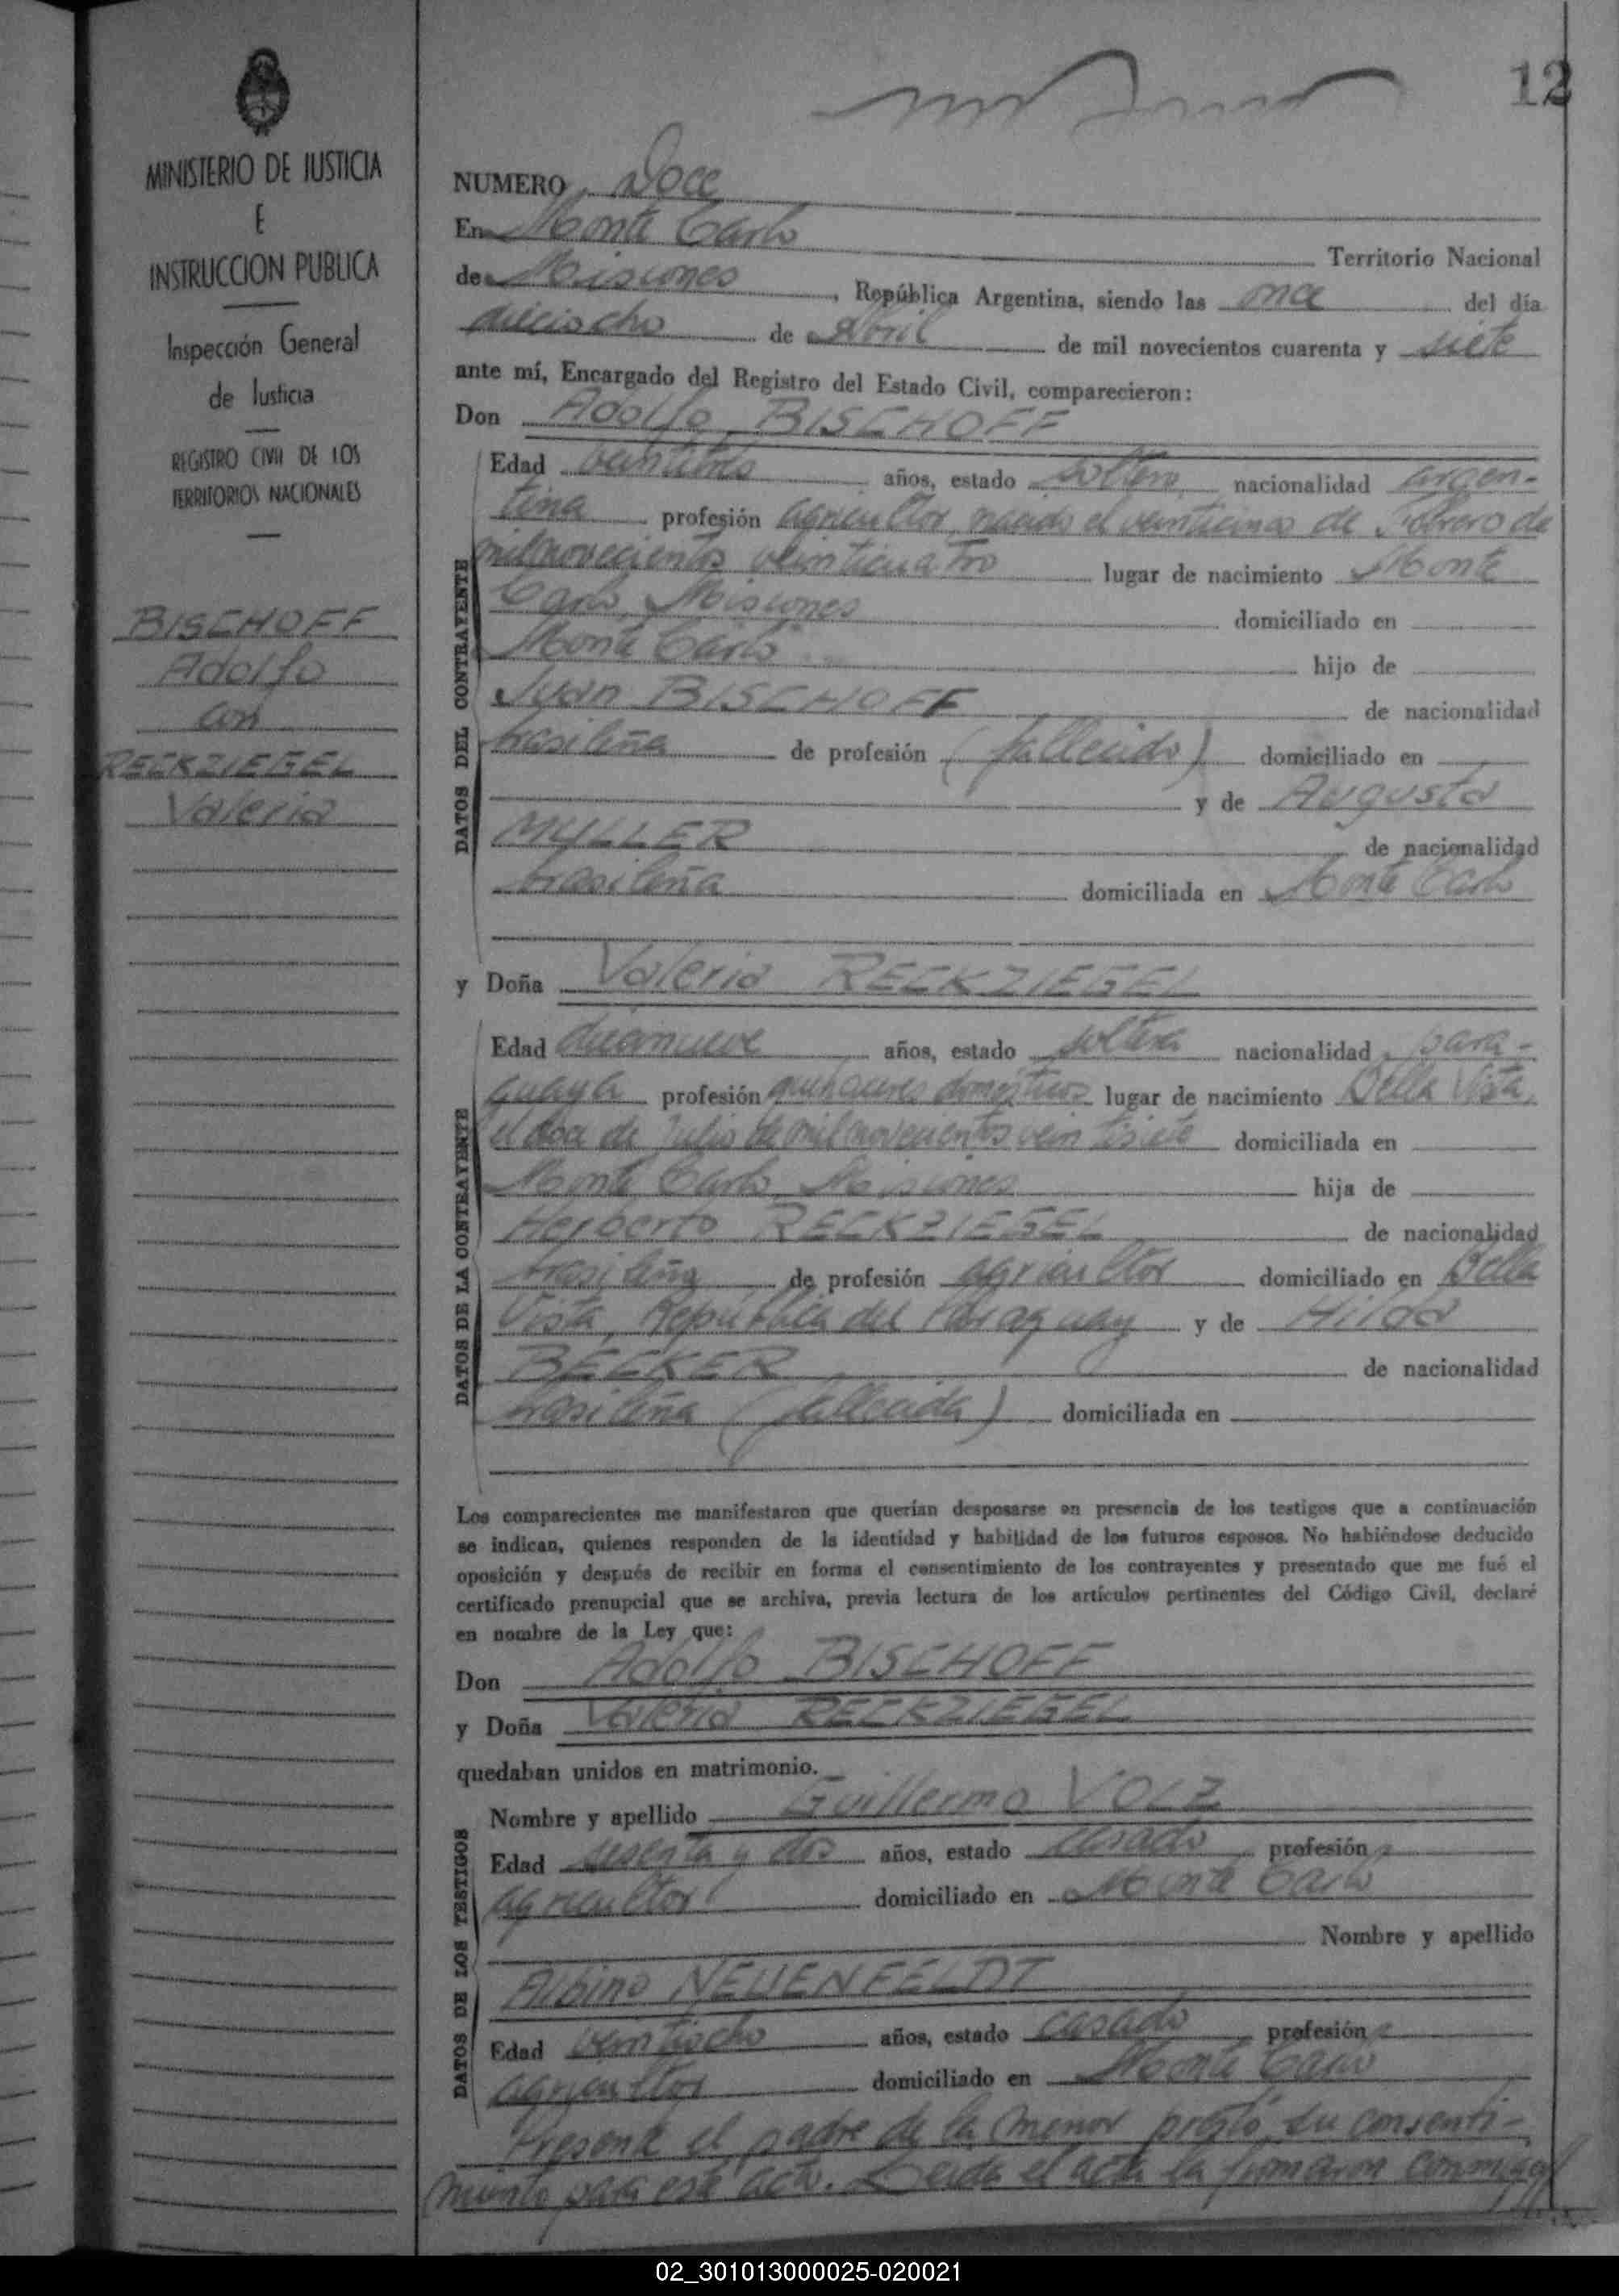 12
MINISTERIO DE JUSTICIA
E
INSTRUCCION PUBLICA
Inspección General
de Justicia
REGISTRO CIVIL DE LOS
TERRITORIOS NACIONALES
BISCHOFF
Adolfo
con
RECKZIEGEL
Valeria
NUMERO Doce
En Monte Carlo Territorio Nacional
de Misiones, República Argentina, siendo las once del día
dieciocho de Abril de mil novecientos cuarenta y siete
ante mí, Encargado del Registro del Estado Civil, comparecieron:
Don Adolfo BISCHOFF
DATOS DEL CONTRAYENTE
Edad veintitrés años, estado soltero, nacionalidad argen-
tina profesión agricultor, nacido el veinticinco de Febrero de
mil novecientos veinticuatro lugar de nacimiento Monte
Carlo, Misiones domiciliado en
Monte Carlo hijo de
Juan BISCHOFF de nacionalidad
brasileña de profesión (fallecido) domiciliado en
y de Augusta
MULLER de nacionalidad
brasileña domiciliada en Monte Carlo
y Doña Valeria RECKZIEGEL
DATOS DE LA CONTRAYENTE
Edad diecinueve años, estado soltera nacionalidad para-
guaya profesión quehaceres domésticos lugar de nacimiento Bella Vista,
el doce de Julio de mil novecientos veintisiete domiciliada en
Monte Carlo, Misiones hija de
Herberto RECKZIEGEL de nacionalidad
brasileña de profesión agricultor domiciliado en Bella
Vista, República del Paraguay y de Hilda
BECKER de nacionalidad
brasileña (fallecida) domiciliada en
Los comparecientes me manifestaron que querían desposarse en presencia de los testigos que a continuación
se indican, quienes responden de la identidad y habilidad de los futuros esposos. No habiéndose deducido
oposición y después de recibir en forma el consentimiento de los contrayentes y presentado que me fué el
certificado prenupcial que se archiva, previa lectura de los artículos pertinentes del Código Civil, declaré
en nombre de la Ley que:
Don Adolfo BISCHOFF
y Doña Valeria RECKZIEGEL
quedaban unidos en matrimonio.
DATOS DE LOS TESTIGOS
Nombre y apellido Guillermo VOLZ
Edad sesenta y dos años, estado casado profesión
agricultor domiciliado en Monte Carlo
Nombre y apellido
Albino NEUENFELDT
Edad veintiocho años, estado casado profesión
agricultor domiciliado en Monte Carlo
Presente el padre de la menor prestó su consenti-
miento para este acto. Leida el acta la firmaron conmigo
02_301013000025-020021